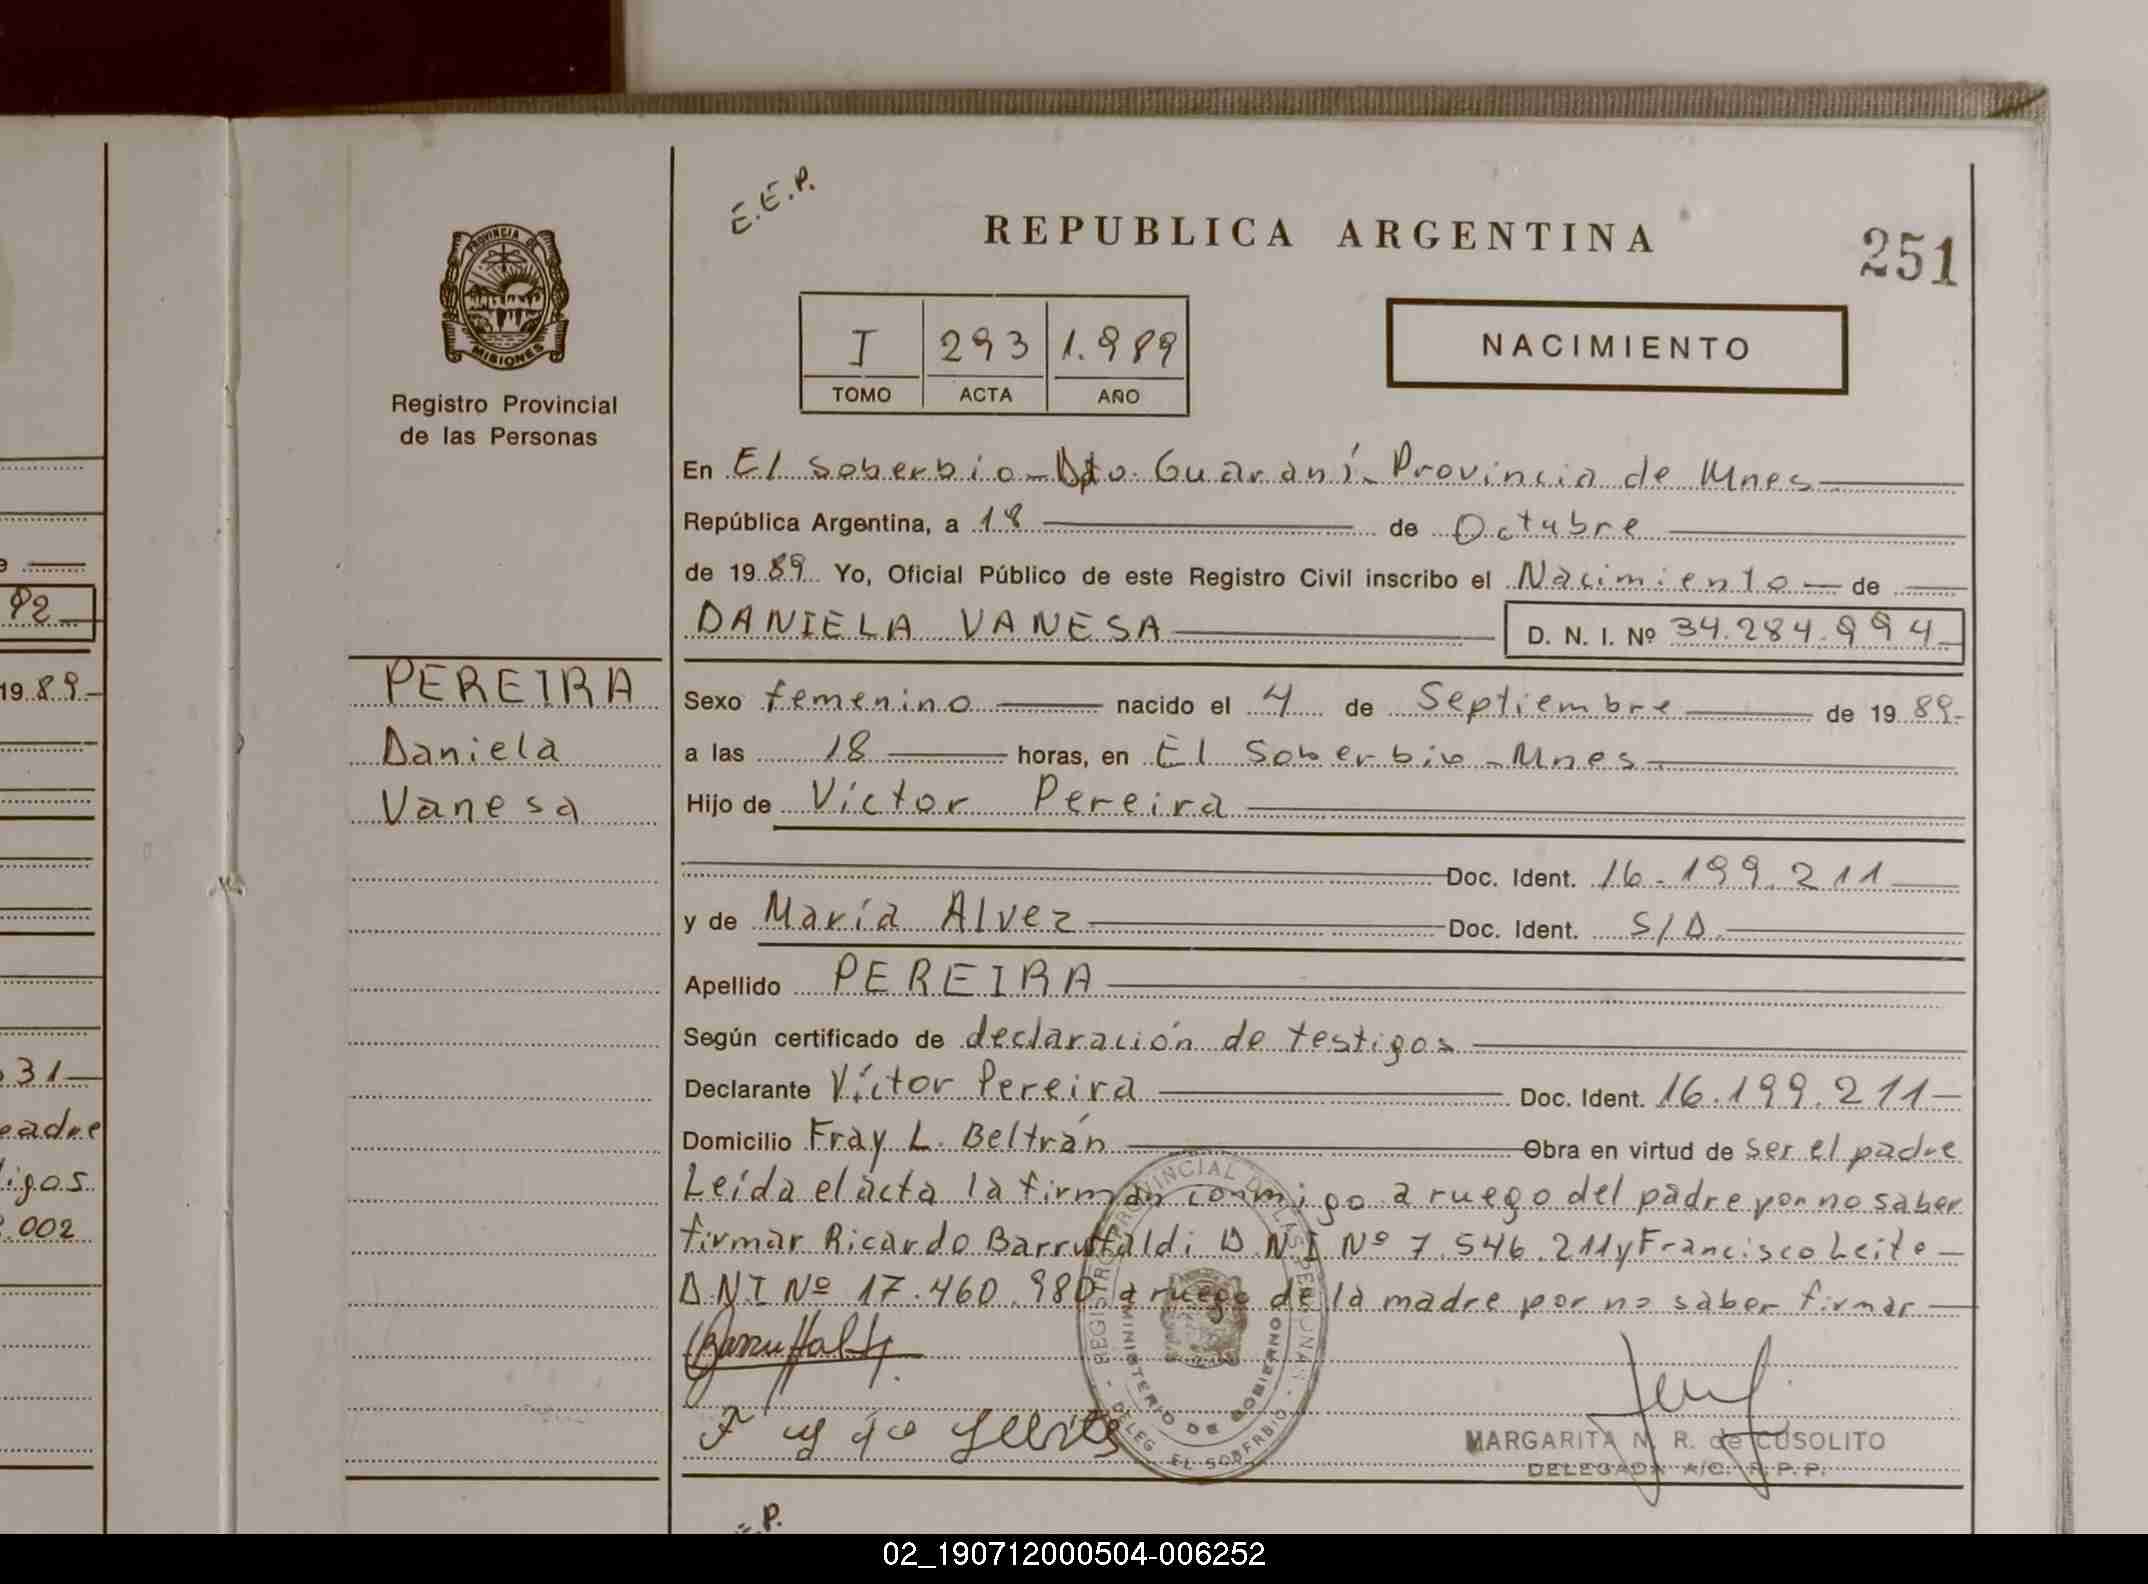 E.E.P.
REPUBLICA ARGENTINA
251
PROVINCIA DE
MISIONES
Registro Provincial
de las Personas
I 293 1.989
TOMO ACTA AÑO
NACIMIENTO
En El Soberbio - Dto. Guaraní - Provincia de Mnes
República Argentina, a 18 de Octubre
de 1989 Yo, Oficial Público de este Registro Civil inscribo el Nacimiento de
DANIELA VANESA D. N. I. Nº 34.284.994
PEREIRA
Daniela
Vanesa
Sexo femenino nacido el 4 de Septiembre de 1989.
a las 18 horas, en El Soberbio - Mnes
Hijo de Víctor Pereira
Doc. Ident. 16.199.211
y de María Alvez Doc. Ident. S/D.
Apellido PEREIRA
Según certificado de declaración de testigos
Declarante Víctor Pereira Doc. Ident. 16.199.211
Domicilio Fray L. Beltrán Obra en virtud de ser el padre
Leída el acta la firman conmigo a ruego del padre por no saber
firmar Ricardo Barruffaldi D.N.I Nº 7.546.211 y Francisco Leite
D.N.I Nº 17.460.980 a ruego de la madre por no saber firmar
REGISTRO PROVINCIAL DE LAS PERSONAS
MINISTERIO DE GOBIERNO
DELEG. EL SOBERBIO
MARGARITA N. R. de CUSOLITO
DELEGADA A/C. R.P.P.
92
1989.
31
padre
igos
.002
E.P.
02_190712000504-006252